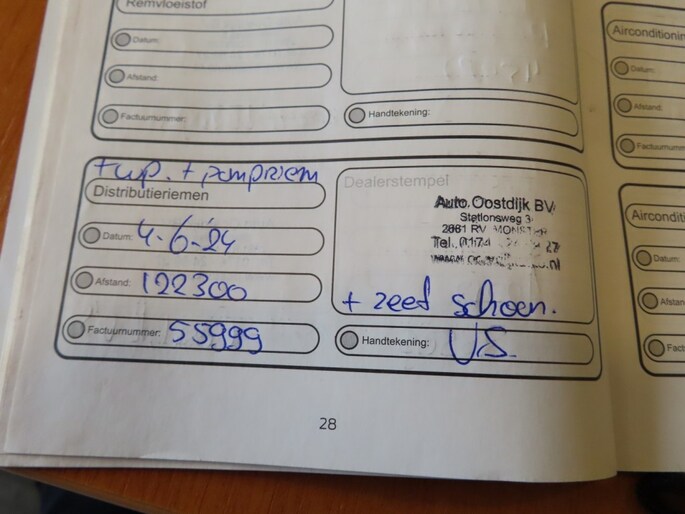 Remvloeistof
Datum:
Afstand:
Factuurnummer:
Handtekening:
Airconditionin
Datum:
Afstand:
Factuurnumm
+ wp. + pompriem
Distributieriemen
Datum: 4-6-'24
Afstand: 122300
Factuurnummer: 55999
Dealerstempel
Auto Oostdijk BV
Stationsweg 3
2681 RV MONSTER
Tel. 0174
+ zeef schoon.
Handtekening: US
Airconditi
Datum:
Afstan
Fact
28